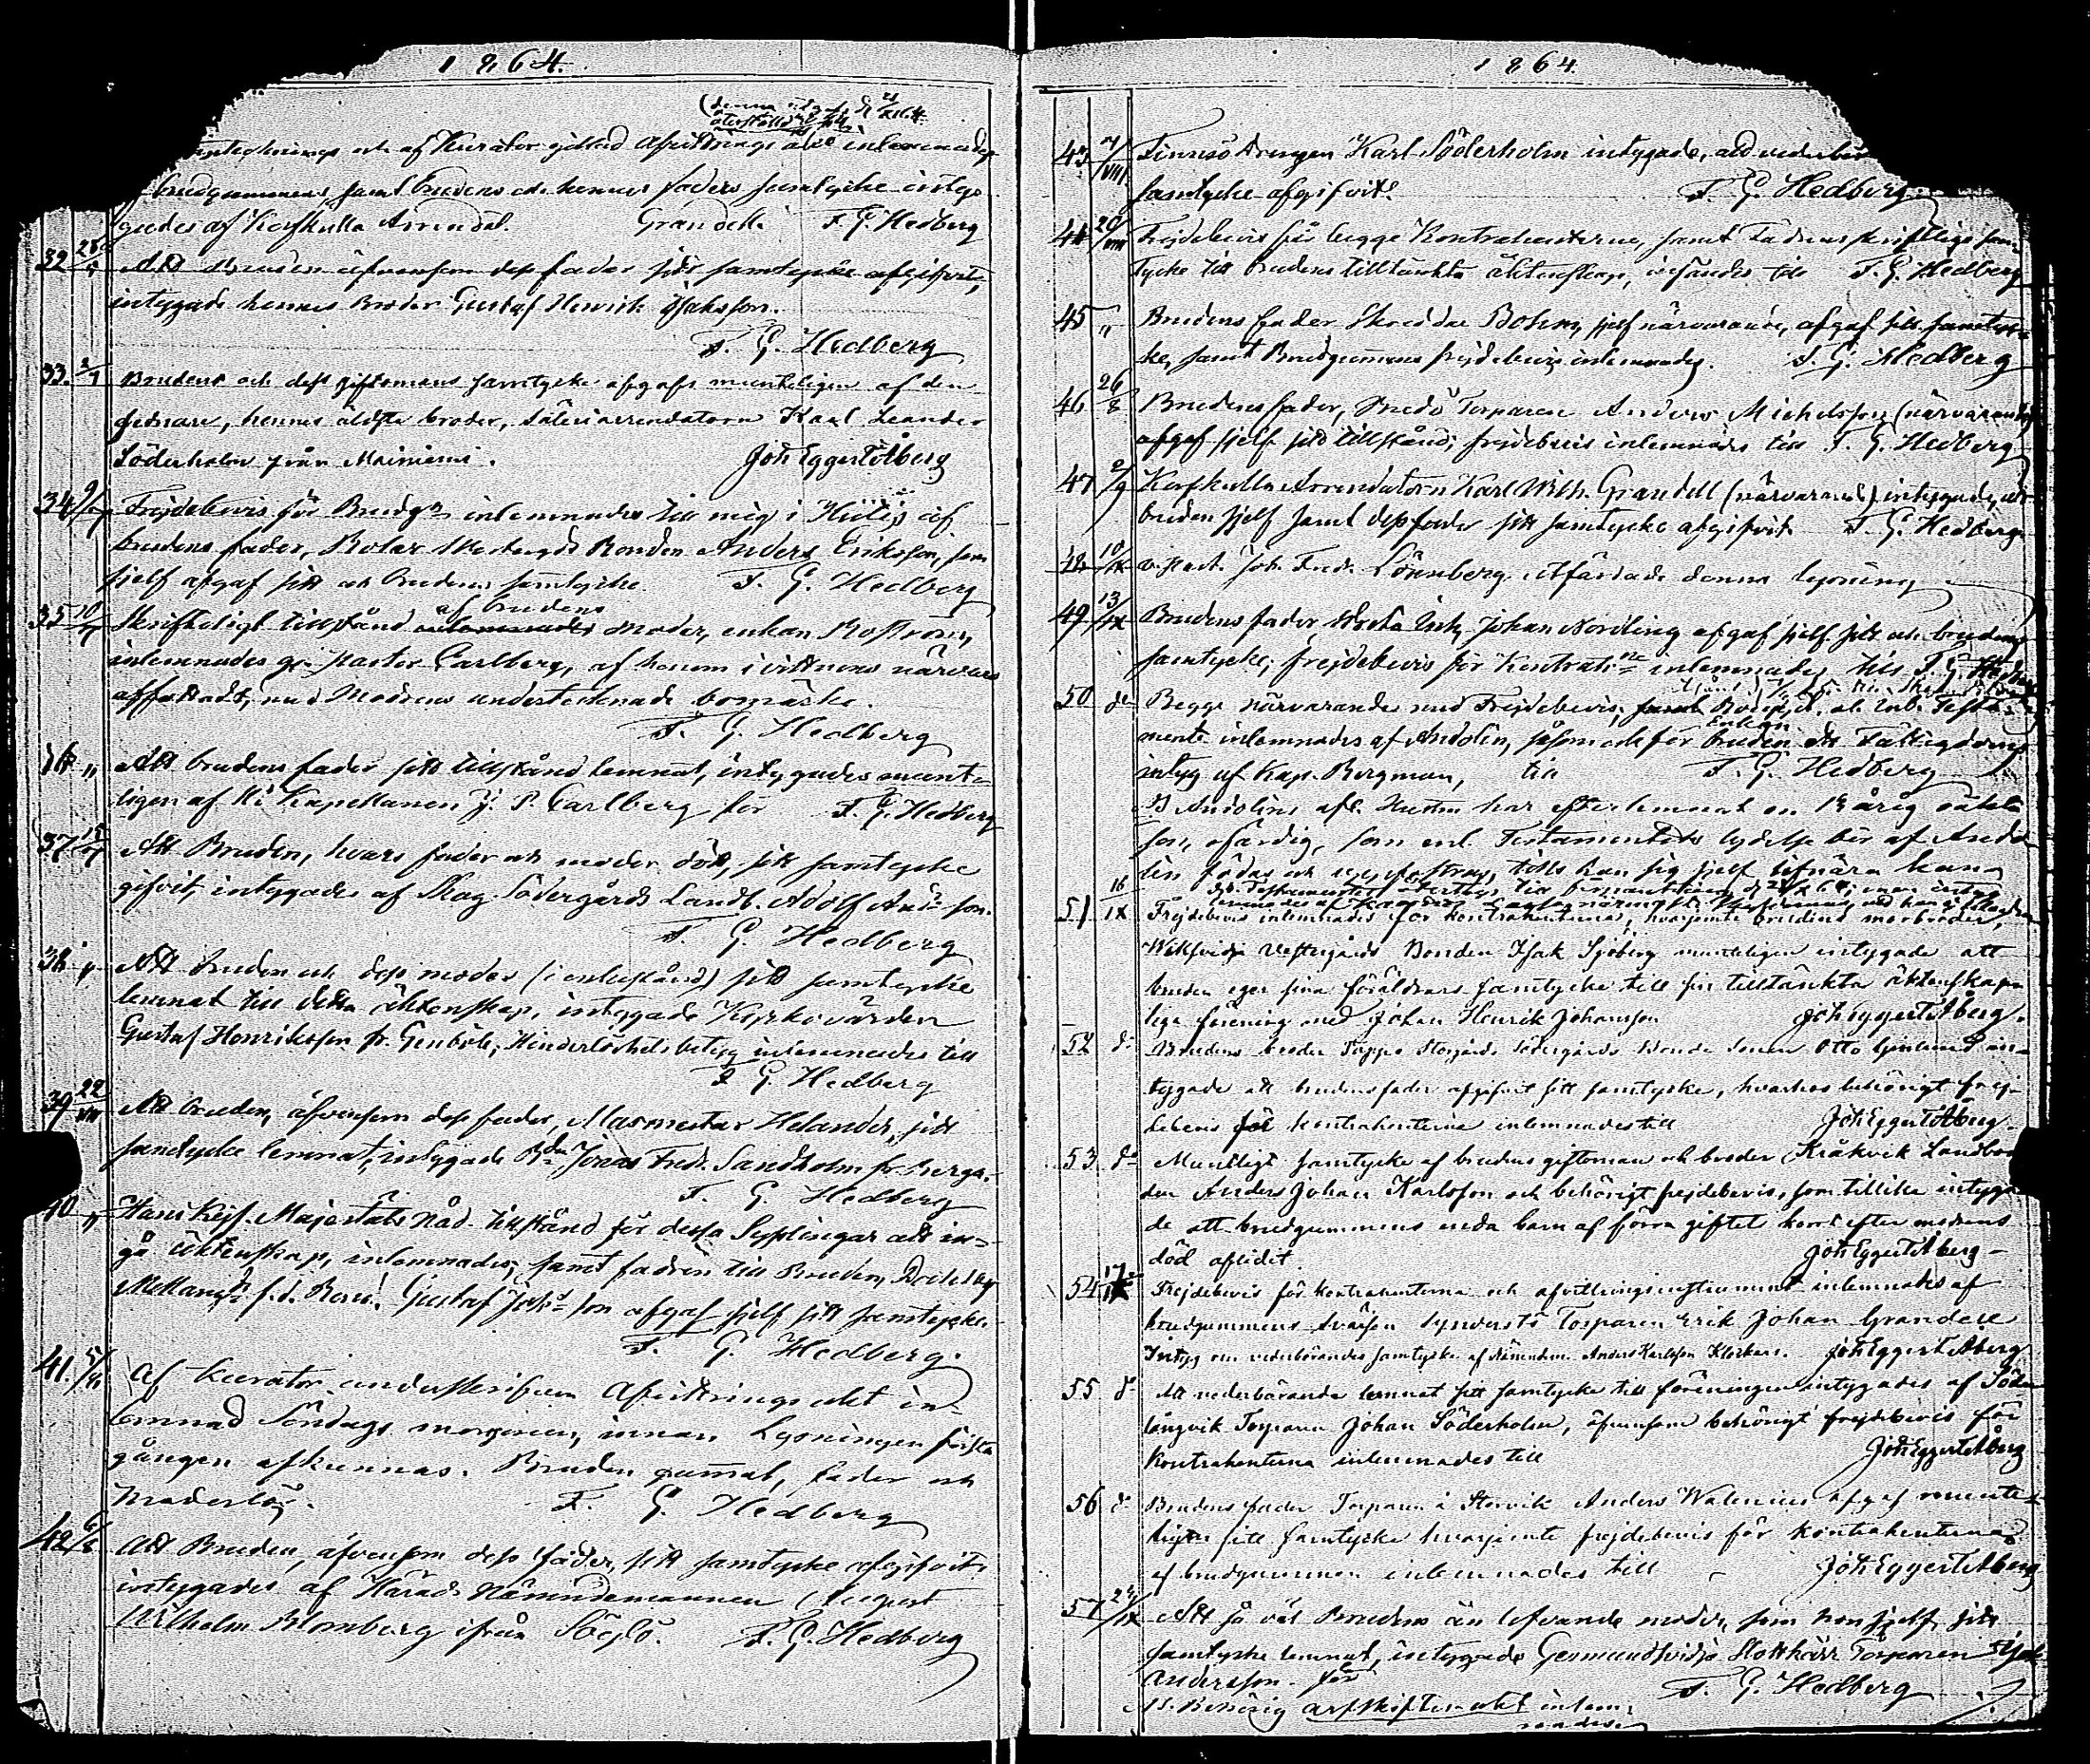 1864.
(denna
och af Kurator gillad Afvittrings akt inlemnades
brudgummens, samt brudens och hennes faders samtycke intyga-
gades af Korskulla Arrendat. Grandell. F. G. Hedberg
32 Att Bruden äfvensom dess fader sitt samtycke afgifvit,
intygade hennes Broder Gustaf Henrik Isaksson.
F. G. Hedberg
33. Brudens och dess giftomans samtycke afgafs munteligen af den
sednare, hennes äldste broder, Säteriarrendatorn Karl Leander
Söderholm från Mainiemi. Joh Eggert Åberg
34 Frejdebevis för Brudgn inlemnades till mig i Hitis af
brudens fader, Rolax Westergds Bonden Anders Eriksson, som
sjelf afgaf sitt och brudens samtycke. F. G. Hedberg
35 10 Skrifteligt tillstånd af brudens moder, enkan
inlemnades gn Pastor Carlberg, af honom i vittnens närvaro
affattadt, med Modrens undertecknade bomärke.
F. G. Hedberg
36 " Att brudens fader sitt tillstånd lemnat, intygades munte-
ligen af Hr Kapellanen J. P. Carlberg, för F. G. Hedberg
37 15 Att Bruden, hvars fader och moder dött, sitt samtycke
gifvit, intygades af Skog Södergårds Landb. Adolf Andsson.
F. G. Hedberg
38 " Att bruden och dess moder (i enkestånd) sitt samtycke
lemnat till detta äktenskap, intygade Kyrkovärden
Gustaf Henriksson fr. Genböle; Hinderlöshetsbetyg inlemnades till
F. G. Hedberg
39 22/VII Att bruden, äfvensom dess fader, Masmästar Helander, sitt
samtycke lemnat, intygade Bdn Jonas Fredr. Sandholm fr. Berga.
F. G. Hedberg
40 " Hans Kejs. Majestäts Nåd. tillstånd för dessa Syslingar att in-
gå äktenskap, inlemnades; samt fadren till Bruden,
Mellangds f. d. Bond. Gustaf Jakssson afgaf sjelf sitt samtycke.
F. G. Hedberg.
41. Af Kurator underskrifven Afvittrings akt in-
lemnad Söndags morgonen, innan Lysningen första
gången afkunnas. Bruden gammal, fader och
moderlös. F. G. Hedberg
42 6/8 Att Bruden, äfvensom dess fader, sitt samtycke afgifvit,
intygades af Härads Nämndemannen August
Wilhelm Blomberg ifrån Söglö. F. G. Hedberg
1864.
43. Finnsö Drengen Karl Söderholm intygade, att
samtycke afgifvits. F. G. Hedberg
44 20/VIII Frejdebevis för begge Kontrahenterne, samt Fadrens skriftliga sam-
tycke till brudens tilltänkta äktenskap, insändes till F. G. Hedberg
45 " Brudens fader Skreddar Bohm, sjelf närvarande, afgaf sitt samtyc-
ke, samt Brudgummens frejdebevis inlemnades. F. G. Hedberg
46 26/8 Brudens fader, Torparen Anders Michelsson (närvarande)
afgaf sjelf sitt tillstånd; frejdebevis inlemnades till F. G. Hedberg
47 2/9 Korskulla Arrendatorn Karl Wilh. Grandell (närvarand) intygade, att
bruden sjelf samt dess fader sitt samtycke afgifvit. F. G. Hedberg
48 10/IX v. Past. Joh. Fredr. Lönnberg utfärdade denna lysning
49 13/IX Brudens fader Johan Nordling afgaf sjelf sitt och brudens
samtycke; frejdebevis för Kontrahne inlemnades till F. G. Hedberg
50 do Begge närvarande med Frejdebevis;
mente inlemnades af Andolin, såsom ock för bruden ett Fattigdoms
intyg af Kap. Bergman, till F. G. Hedberg
Andolins afl. Hustru har efterlemnat en 13 årig oäkta
son, ofärdig, som enl. Testamentets lydelse bör af Ando-
lin födas och uppfostras, tills han sig sjelf lifnära kan.
51. 16/IX Frejdebevis inlemnades för kontrahenterna, hvarjemte brudens morbroder,
Westergårds Bonden Isak Sjöberg munteligen intygade att
bruden eger sina föräldrars samtycke till sin tilltänkta äktenskap-
liga förening med Johan Henrik Johansson. Joh Eggert Åberg.
52 do Brudens broder Storgårds Södergårds Bonde Sonen Otto in-
tygade att brudens fader afgifvit sitt samtycke, hvarhos behörigt frej-
debevis för kontrahenterna inlemnades till Joh Eggert Åberg.
53. do Muntligt samtycke af brudens giftoman och broder Kråkvik Landbon-
den Anders Johan Karlsson och behörigt frejdebevis, som tillika intyga-
de att brudgummens enda barn af förra giftet kort efter modrens
död aflidit. Joh Eggert Åberg
54 17/IX Frejdebevis för kontrahenterna och afvittringsinstrument inlemnades af
brudgummens svåger Torparen Erik Johan Grandell
Intyg om vederbörandes samtycke af Nämndem. Anders Karlsson Klockars. Joh Eggert Åberg
55 do Att vederbörande lemnat sitt samtycke till föreningen intygades af Söder-
långvik Torparen Johan Söderholm, äfvensom behörigt frejdebevis för
Kontrahenterna inlemnades till Joh Eggert Åberg
56 do Brudens fader Torparen i Storvik Anders Walenius afgaf munte-
ligen sitt samtycke hvarjemte frejdebevis för kontrahenterna
af brudgummen inlemnades till Joh Eggert Åberg
57 24/IX Att så väl Brudens än lefvande moder, som hon sjelf, sitt
samtycke lemnat, intygade Torparen Isak
Andersson för F. G. Hedberg
Behörig arfskiftes akt inlem-
nades.